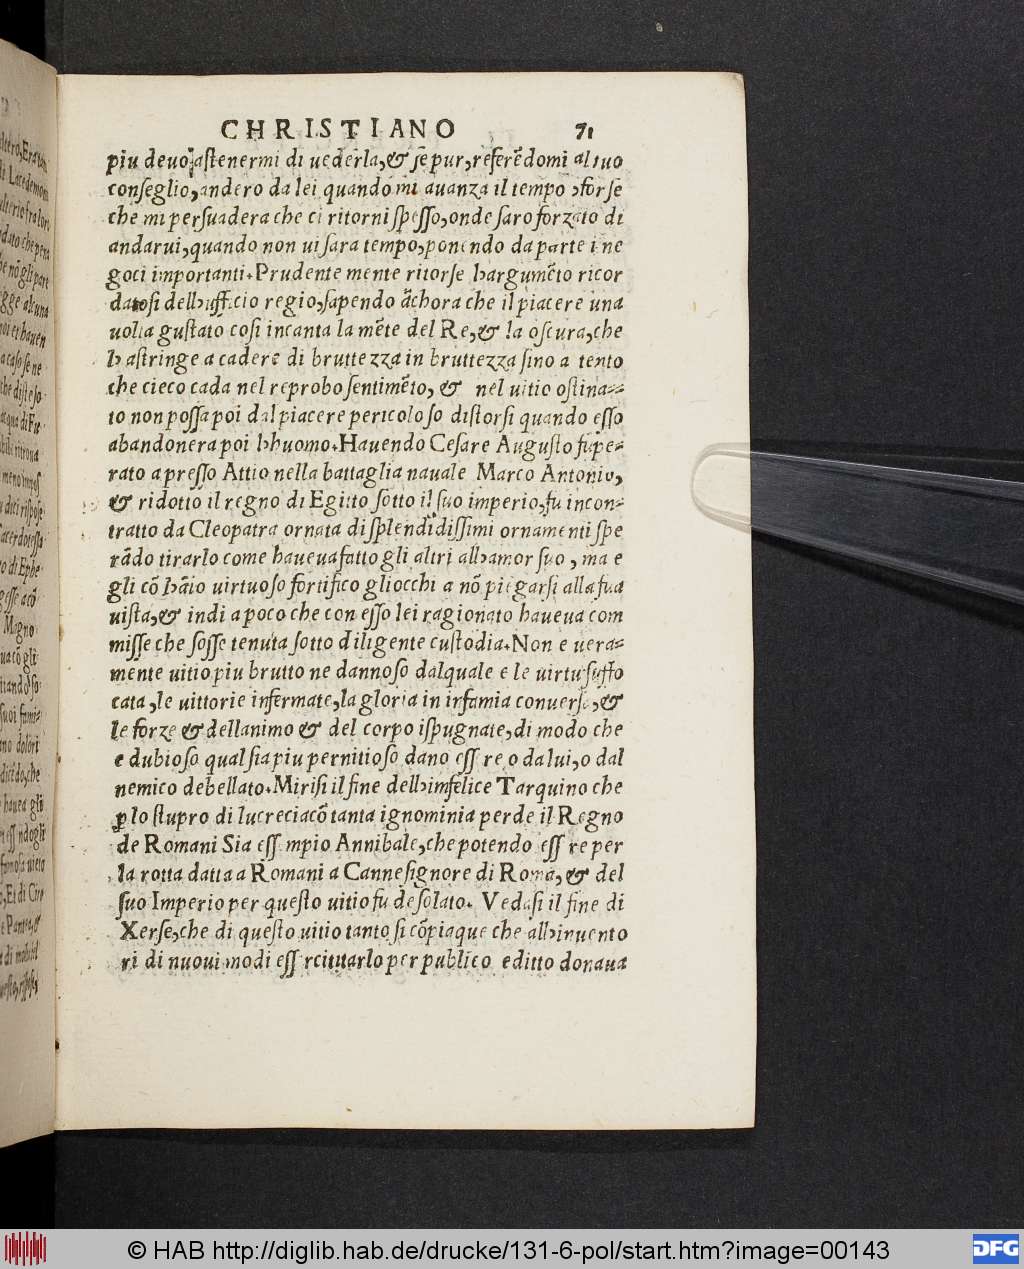 CHRISTIANO 71
piu devo astenermi di uederla, & se pur, referẽdomi al tuo
conseglio, andero da lei quando mi auanza il tempo, forse
che mi persuadera che ci ritorni spesso, onde saro forzato di
andarui, quando non ui sara tempo, ponendo da parte i ne
goci importanti. Prudente mente ritorse l'argumẽto ricor
datosi dell'ufficio regio, sapendo ãchora che il piacere una
uolta gustato cosi incanta la mẽte del Re, & la oscura, che
l'astringe a cadere di bruttezza in bruttezza sino a tento
che cieco cada nel reprobo sentimẽto, & nel uitio ostina-
to non possa poi dal piacere pericoloso distorsi quando esso
abandonera poi l'huomo. Hauendo Cesare Augusto supe-
rato apresso Attio nella battaglia nauale Marco Antonio,
& ridotto il regno di Egitto sotto il suo imperio, fu incon-
tratto da Cleopatra ornata di splendidissimi ornamenti spe
rãdo tirarlo come haueua fatto gli altri all'amor suo, ma e
gli cõ l'aĩo uirtuoso fortifico gliocchi a nõ piegarsi alla sua
uista, & indi a poco che con esso lei ragionato haueua com
misse che fosse tenuta sotto diligente custodia. Non e uera-
mente uitio piu brutto ne dannoso dalquale e le uirtu suffo
cata, le uittorie infermate, la gloria in infamia conuersa, &
le forze & dellanimo & del corpo ispugnate, di modo che
e dubioso qual sia piu pernitioso dano ess re o da lui, o dal
nemico debellato. Mirisi il fine dell'infelice Tarquino che
ꝑ lo stupro di lucrecia cõ tanta ignominia perde il Regno
de Romani Sia ess mpio Annibale, che potendo ess re per
la rotta datta a Romani a Canne signore di Roma, & del
suo Imperio per questo uitio fu desolato. Vedasi il fine di
Xerse, che di questo uitio tanto si cõpiaque che all'inuento
ri di nuoui modi ess rcitarlo per publico editto donaua
© HAB http://diglib.hab.de/drucke/131-6-pol/start.htm?image=00143
DFG